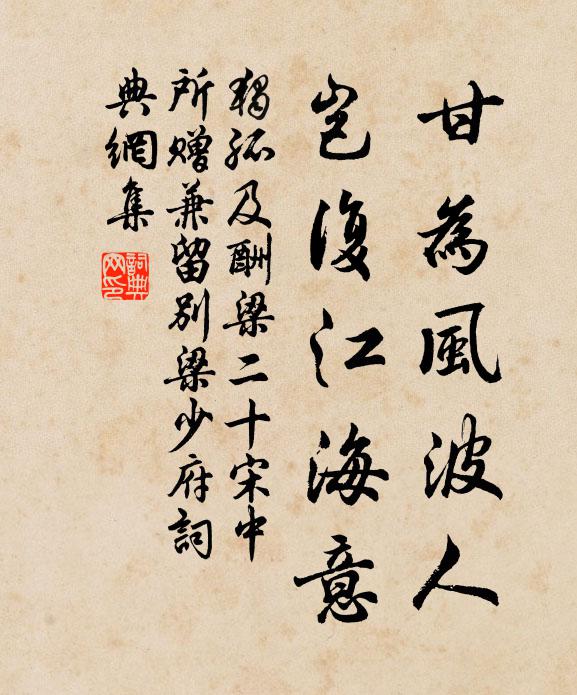 甘為風波人
豈復江海意
獨孤及酬梁二十宋中
所贈兼留別梁少府詞
典網集
詞典網印